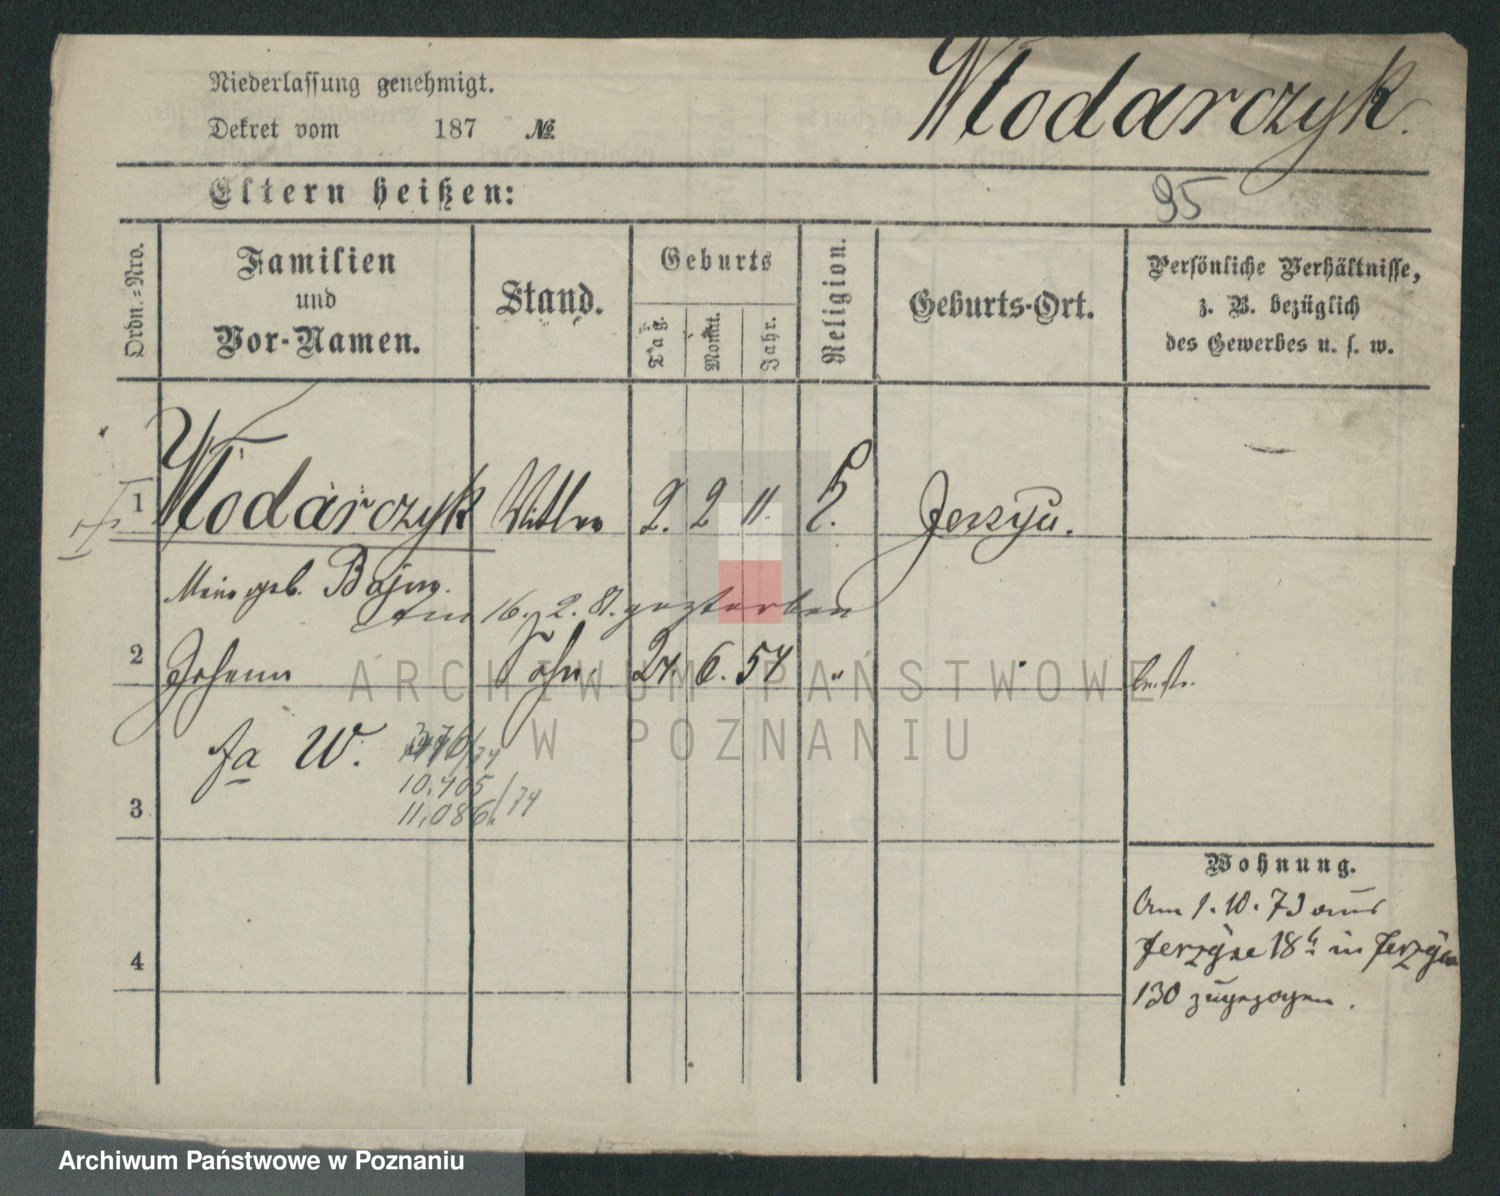 Niederlassung genehmigt.
Włodarczyk.
Dekret vom 187 №
Eltern heißen:
95
Ordn.-Nro.
Familien und Vor-Namen.
Stand.
Geburts
Tag.
Monat.
Jahr.
Religion.
Geburts-Ort.
Persönliche Verhältnisse, z. B. bezüglich des Gewerbes u. s. w.
1 Włodarczyk 2. 2 11. Jerzyce.
geb.
am 16. 2. 81. gestorben
2 Johann Sohn. 24. 6. 54 "
fa W.
/74
10,405
11,086 /74
3
Wohnung.
Am 1. 10. 73 aus
Jerzyce 18 in Jerzyce
130 zugezogen.
4
ARCHIWUM PAŃSTWOWE
W POZNANIU
Archiwum Państwowe w Poznaniu